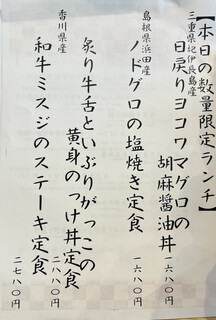 【本日の数量限定ランチ】
三重県紀伊長島産
日戻りヨコワマグロの
胡麻醤油丼
一六八〇円
島根県浜田産
ノドグロの塩焼き定食
一六八〇円
炙り牛舌といぶりがっこの
黄身のっけ丼定食
二八八〇円
香川県産
和牛ミスジのステーキ定食
二七八〇円